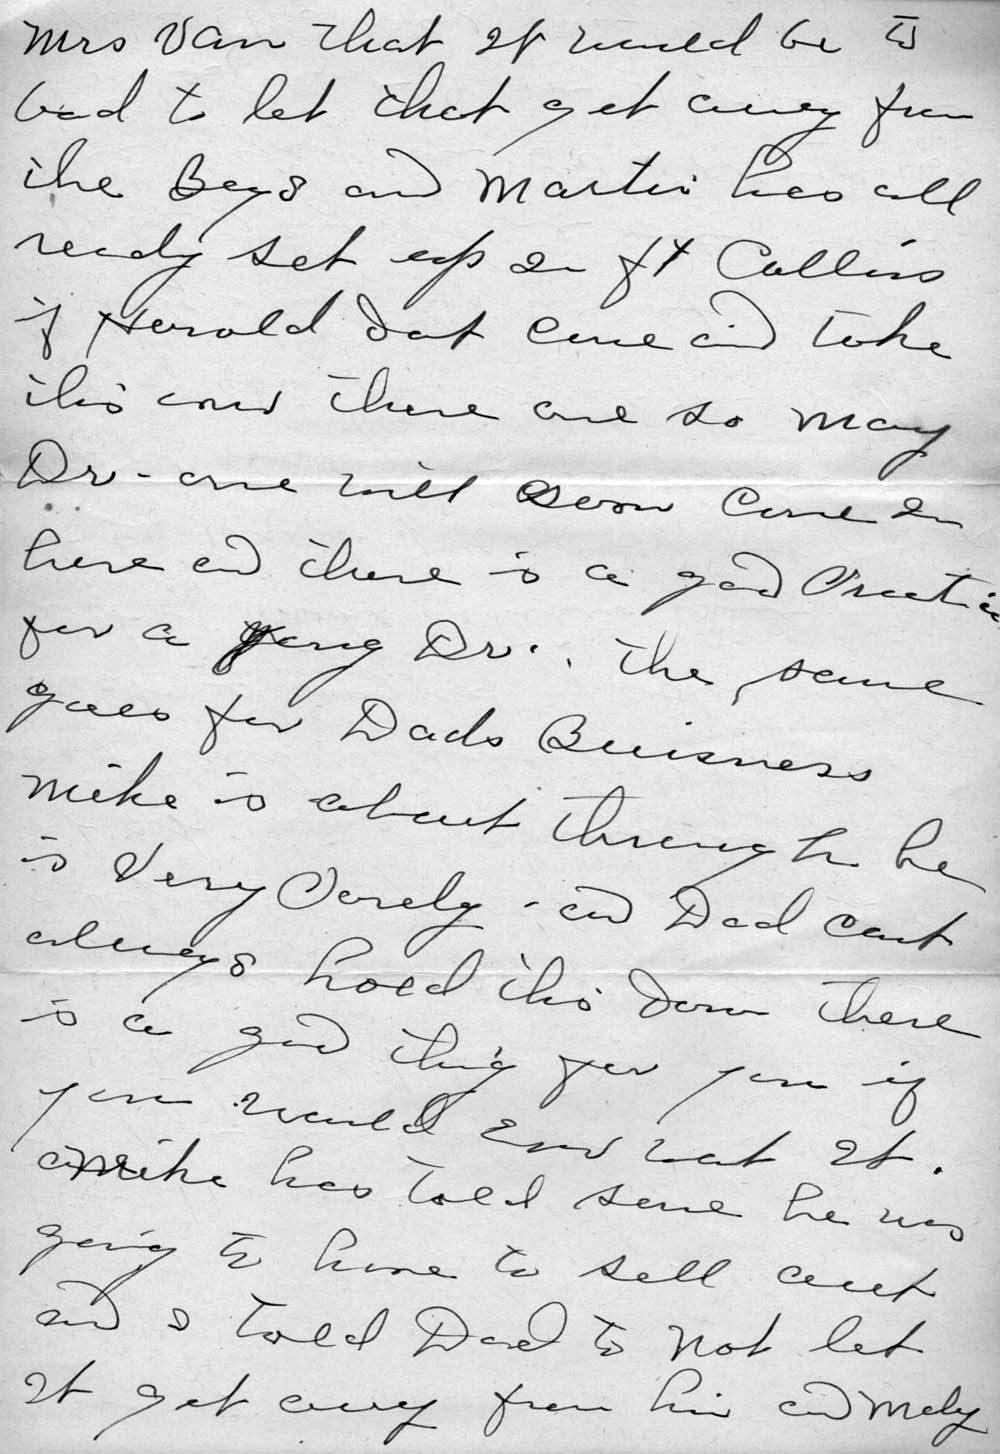 Mrs Van that it would be to
bad to let that get away from
the Boys and Martin has all
ready set up in ft Collins
if Herold dot come and take
this over there are so many
Dr- one will soon come in
here and there is a good Practice
for a young Dr. the same
goes for Dads Buisness
Mike is about through he
is Very Porely - and Dad cant
always hold this down there
is a good thing for you if
you would want it.
Mike has told some he was
going to have to sell out
and I told Dad to not let
it get away from him and